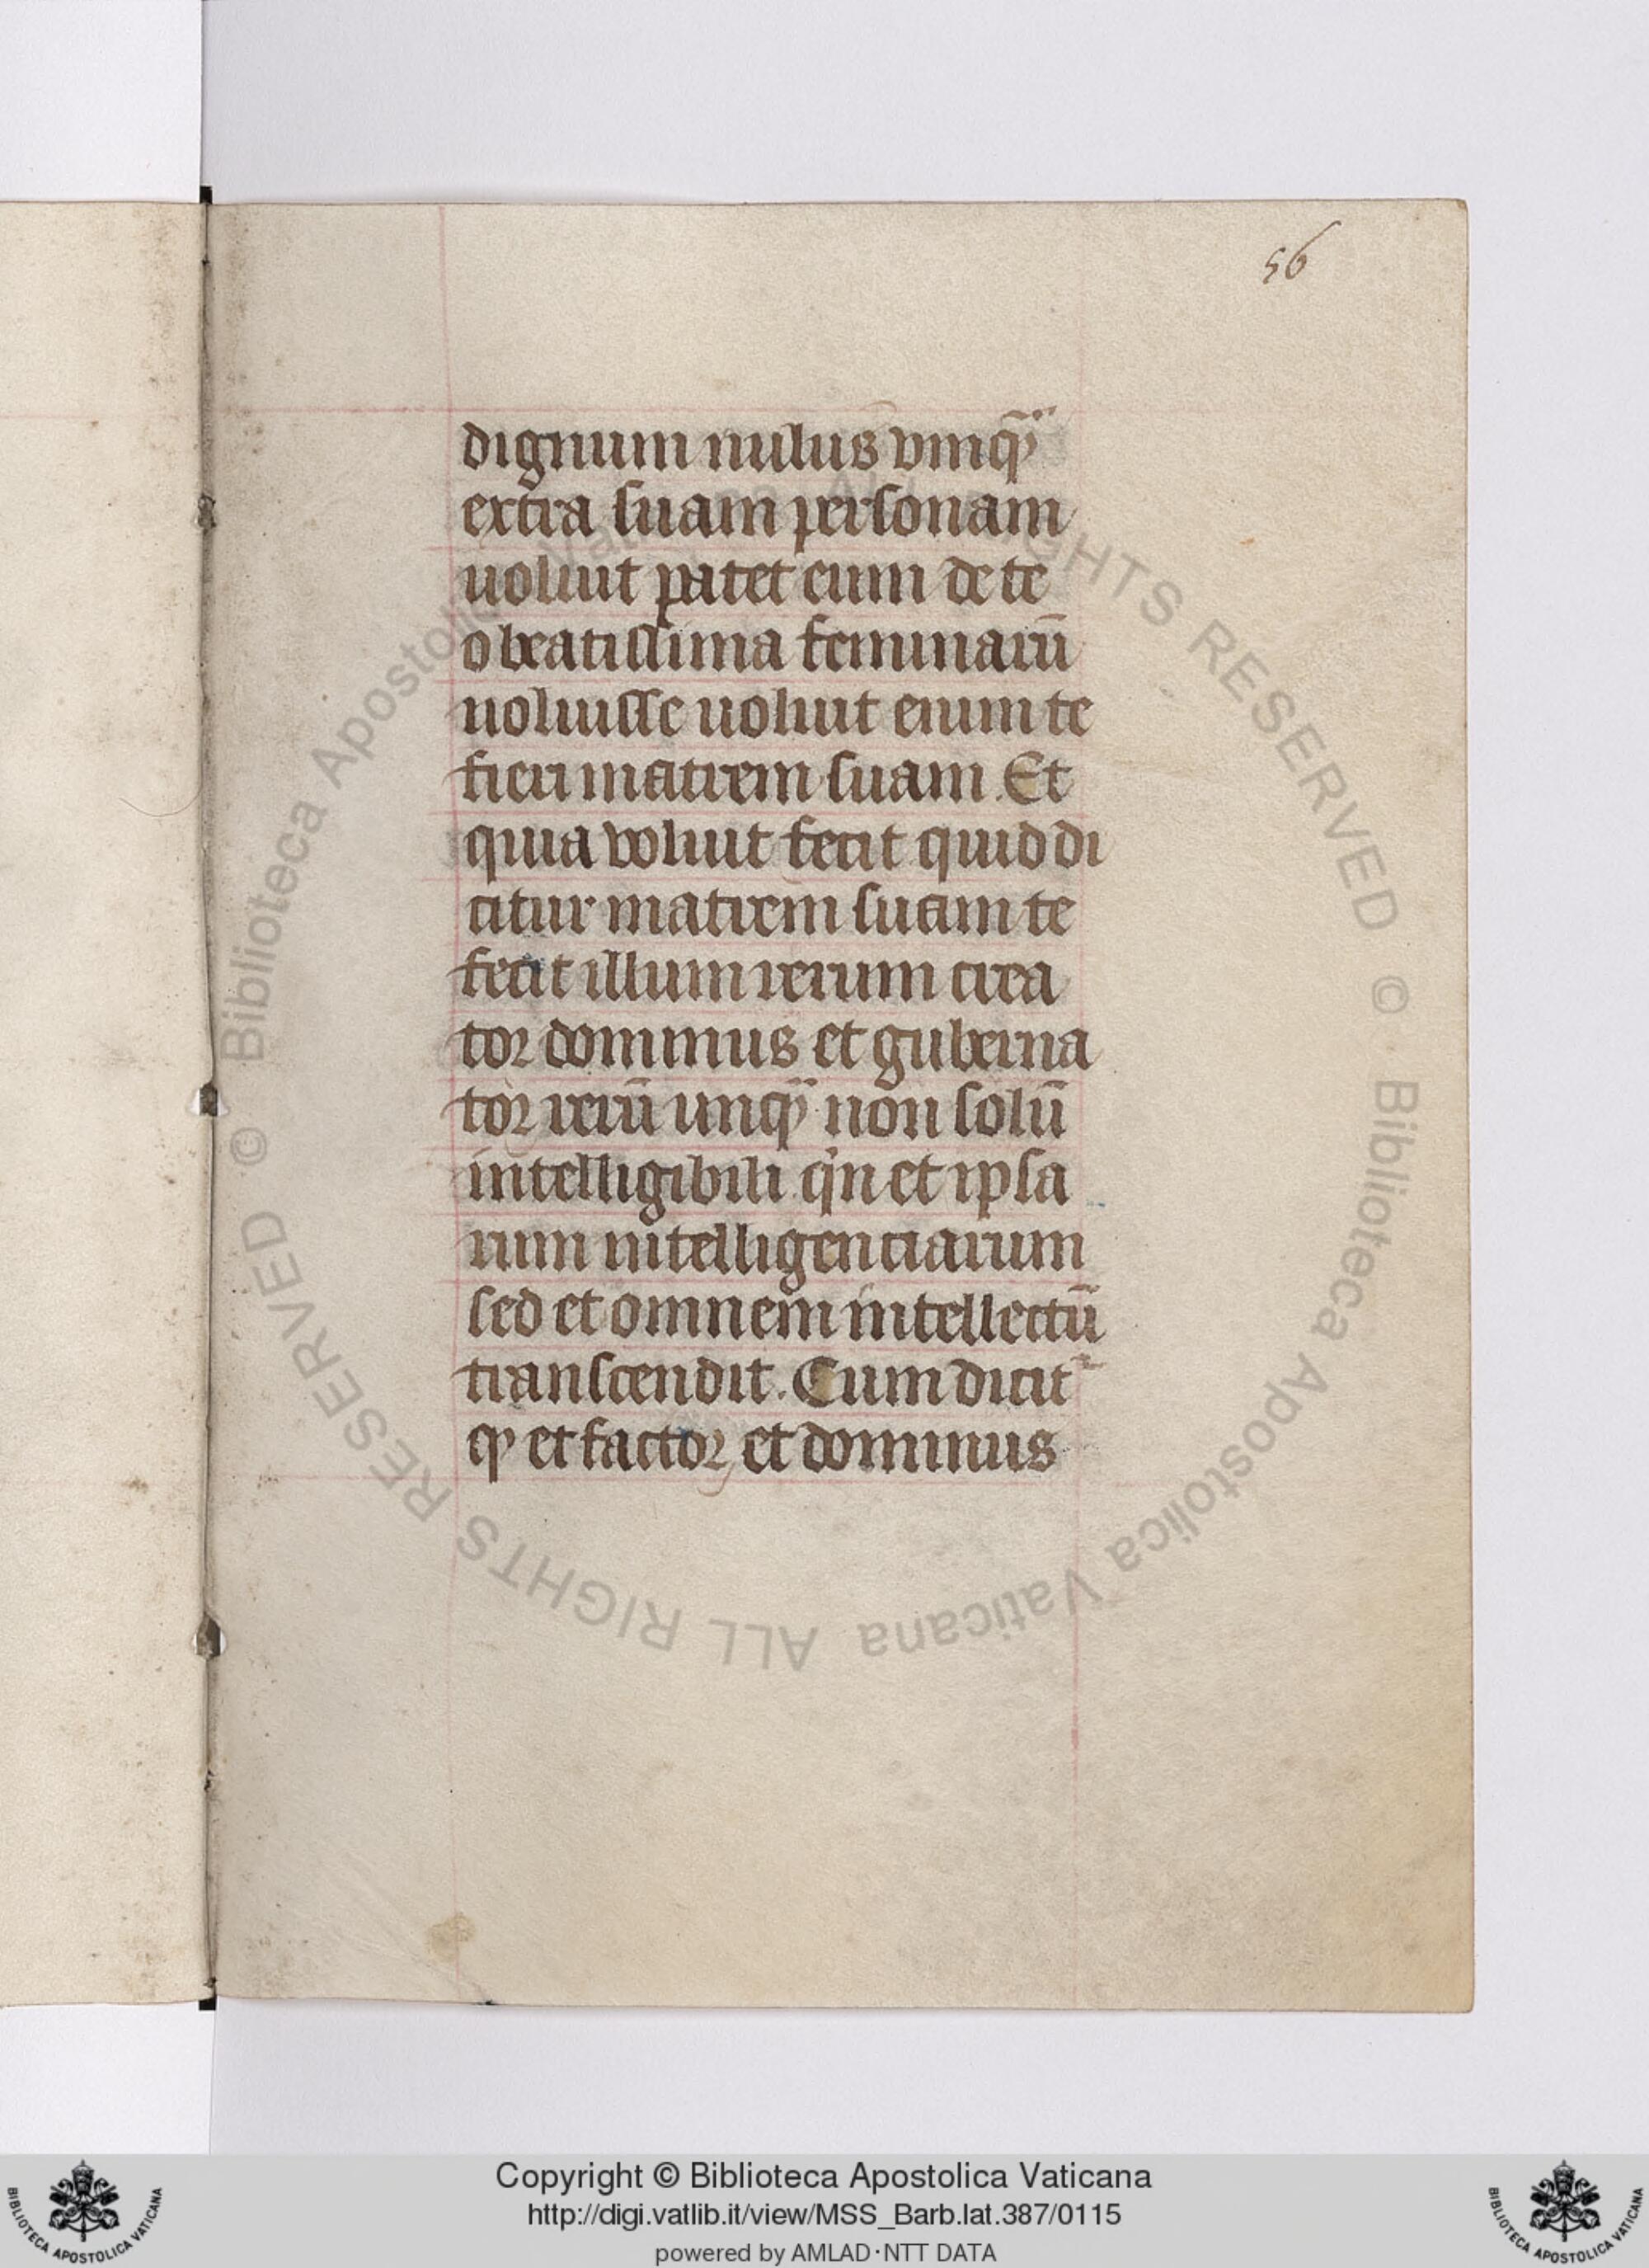 56
dignum nulus vmqᷓ
extra suam personam
uoluit patet cum de te
o beatissima feminarū
uoluisse uoluit enim te
fieri matrem suam. Et
quia voluit fecit quid di
citur matrem suam te
fecit illum rerum crea
tor dominus et guberna
tor rerū unqᷓ non solū
intelligibili qin et ipsa
rum intelligenciarum
sed et omnem intellectū
transcendit. Cum dicit᷑
qꝫ et factor et dominus
© Biblioteca Apostolica Vaticana ALL RIGHTS RESERVED
© Biblioteca Apostolica Vaticana ALL RIGHTS RESERVED
Copyright © Biblioteca Apostolica Vaticana
http://digi.vatlib.it/view/MSS_Barb.lat.387/0115
powered by AMLAD·NTT DATA
BIBLIOTECA APOSTOLICA VATICANA
BIBLIOTECA APOSTOLICA VATICANA